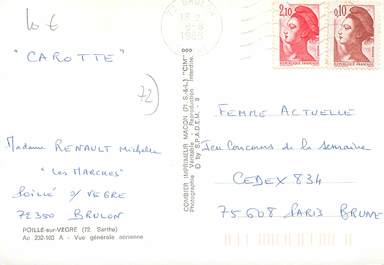 10 €
"CAROTTE"
72
Madame RENAULT Michelle
"Les MARCHES"
POILLÉ S/ VEGRE
72350 BRULON
POILLÉ-sur-VEGRE (72. Sarthe)
Ac 232-103 A - Vue générale aérienne
COMBIER IMPRIMEUR MACON (71.S.-&-L) "CIM"
Photographie Véritable - Reproduction Interdite.
© by S.P.A.D.E.M. - 9
2,10
0,10
FEMME ACTUELLE
Jeu Concours de la semaine
CEDEX 834
75608 PARIS BRUNE